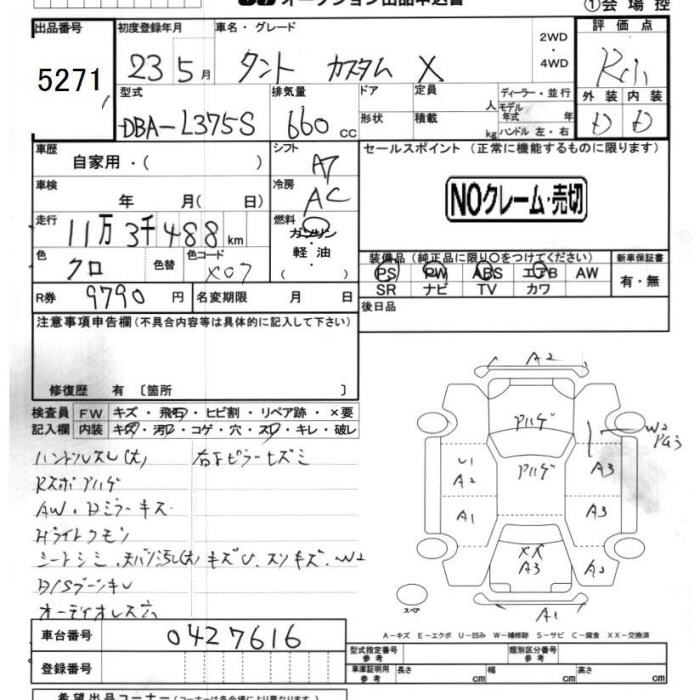 オークション出品申込書
①会場控
出品番号
5271
初度登録年月
23 5月
車名・グレード
タント カスタム X
2WD
・
4WD
評価点
外装 内装
D D
型式
DBA-L375S
排気量
660 cc
ドア
形状
定員
人
積載
kg
ディーラー・並行
モデル年式 年
ハンドル 左・右
車歴
自家用・( )
シフト
AT
車検
年 月( 日)
冷房
AC
走行
11万3千488km
燃料
ガソリン
・
軽油
( )
色
クロ
色替
色コード
X07
R券
9790円
名変期限 月 日
セールスポイント (正常に機能するものに限ります)
NOクレーム・売切
装備品(純正品に限り○をつけてください)
PS PW ABS エアB AW
SR ナビ TV カワ
新車保証書
有・無
後日品
注意事項申告欄(不具合内容等は具体的に記入して下さい)
修復歴 有〔箇所 〕
検査員記入欄
FW キズ・飛石・ヒビ割・リペア跡・×要
内装 キズ・汚レ・コゲ・穴・スレ・キレ・破レ
ハンドルスレ(大)
Rスポアハゲ
AW・Dミラーキズ
Hライトクモリ
オーディオレス穴
A2
アハゲ
アハゲ
W2
U1
A2
A3
A1
A3
XX
A3
A2
A1
スペア
A-キズ E-エクボ U-凹み W-補修跡 S-サビ C-腐食 XX-交換済
車台番号
0427616
登録番号
型式指定番号 参考
類別区分番号 参考
車庫証明用 参考
長さ cm 幅 cm 高さ cm
希望出品コーナー(コーナーは各会場により異なります)